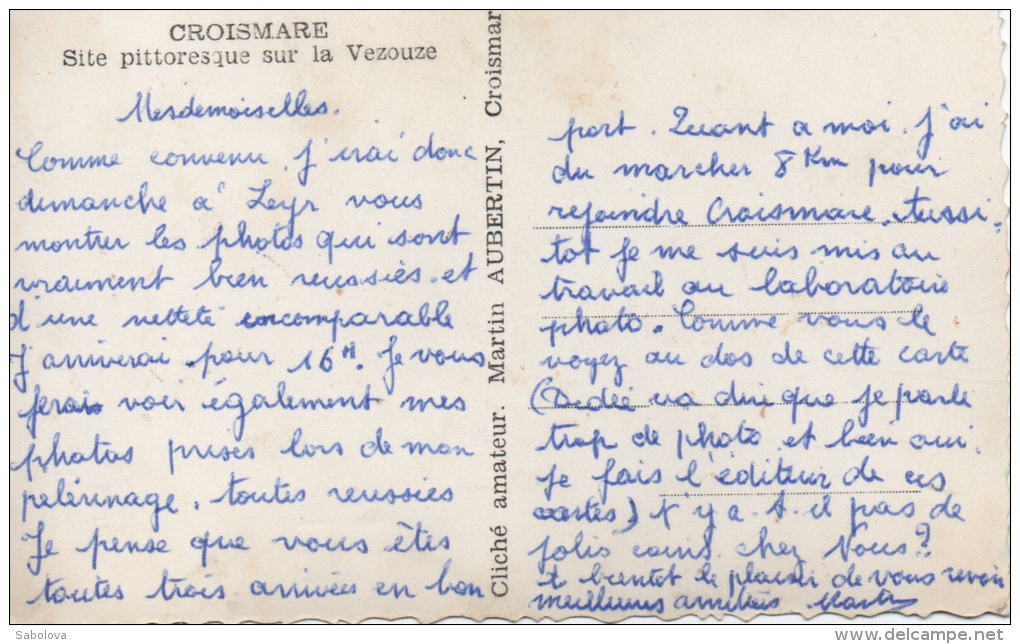 CROISMARE
Site pittoresque sur la Vezouze
Mesdemoiselles.
Comme convenu j'irai donc
dimanche à Leyr vous
montrer les photos qui sont
vraiment bien reussiés et
d'une netteté incomparable
J'arriverai pour 16H. Je vous
ferais voir également mes
photos prises lors de mon
pelérinage, toutes reussies
Je pense que vous êtes
toutes trois arrivées en bon
Cliché amateur. Martin AUBERTIN, Croismar
port. Quant a moi j'ai
du marcher 8 Km pour
rejoindre Croismare. Aussi-
tot je me suis mis au
travail au laboratoire
photo. Comme vous le
voyez au dos de cette carte
(Dedée va dire que je parle
trop de photo et bien oui.
je fais l'éditeur de ces
cartes) N'y a-t-il pas de
jolis coins chez Vous?
A bientot le plaisir de vous revoir
meilleures amitiés Martin
Sabolova
www.delcampe.net